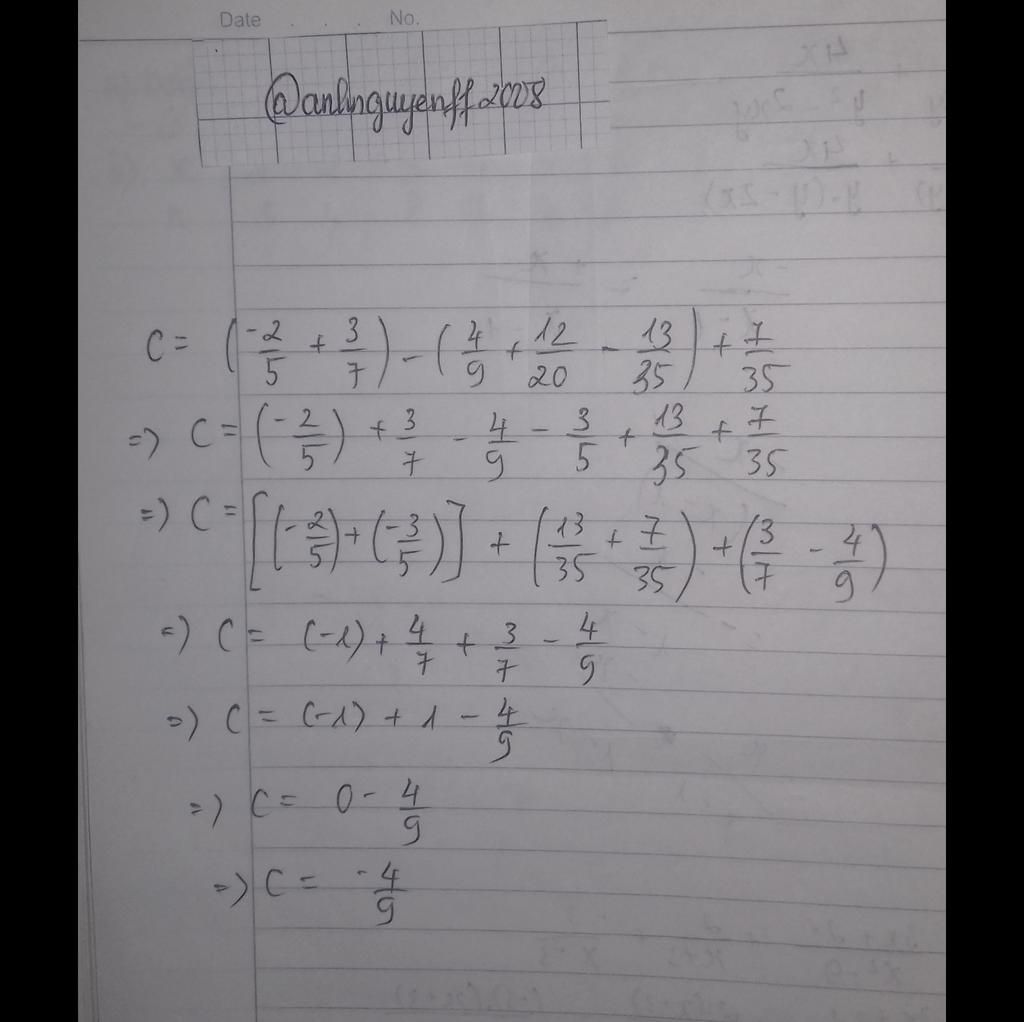 Date . . . No.
@anlnguyenff2008
C = (-2/5 + 3/7) - (4/9 + 12/20 - 13/35) + 7/35
=) C = (-2/5) + 3/7 - 4/9 - 3/5 + 13/35 + 7/35
=) C = [(-2/5) + (-3/5)] + (13/35 + 7/35) + (3/7 - 4/9)
=) C = (-1) + 4/7 + 3/7 - 4/9
=) C = (-1) + 1 - 4/9
=) C = 0 - 4/9
=) C = -4/9